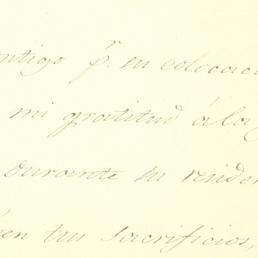 ntigo pr. su colicaci
mi gratitud á la
durante su resider
en tus sacrificios,